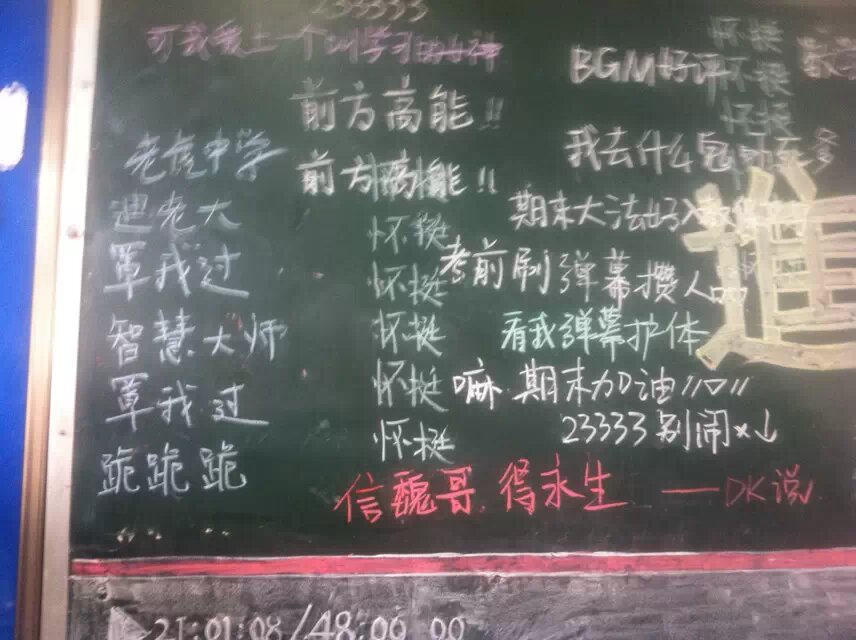 233333
可我爱上一个叫学习的女神
怀挺
BGM好评
怀挺
怀挺
前方高能!!
我去什么鬼
老虎中学
前方高能!!
期末大法好
迪老大
怀挺
考前刷弹幕攒人品
罩我过
怀挺
智慧大师
怀挺
看我弹幕护体
罩我过
怀挺
嘛 期末加油〃口〃
怀挺
23333别闹×↓
跪跪跪
信魏哥 得永生 ——DK说
21:01:08/48:06 00